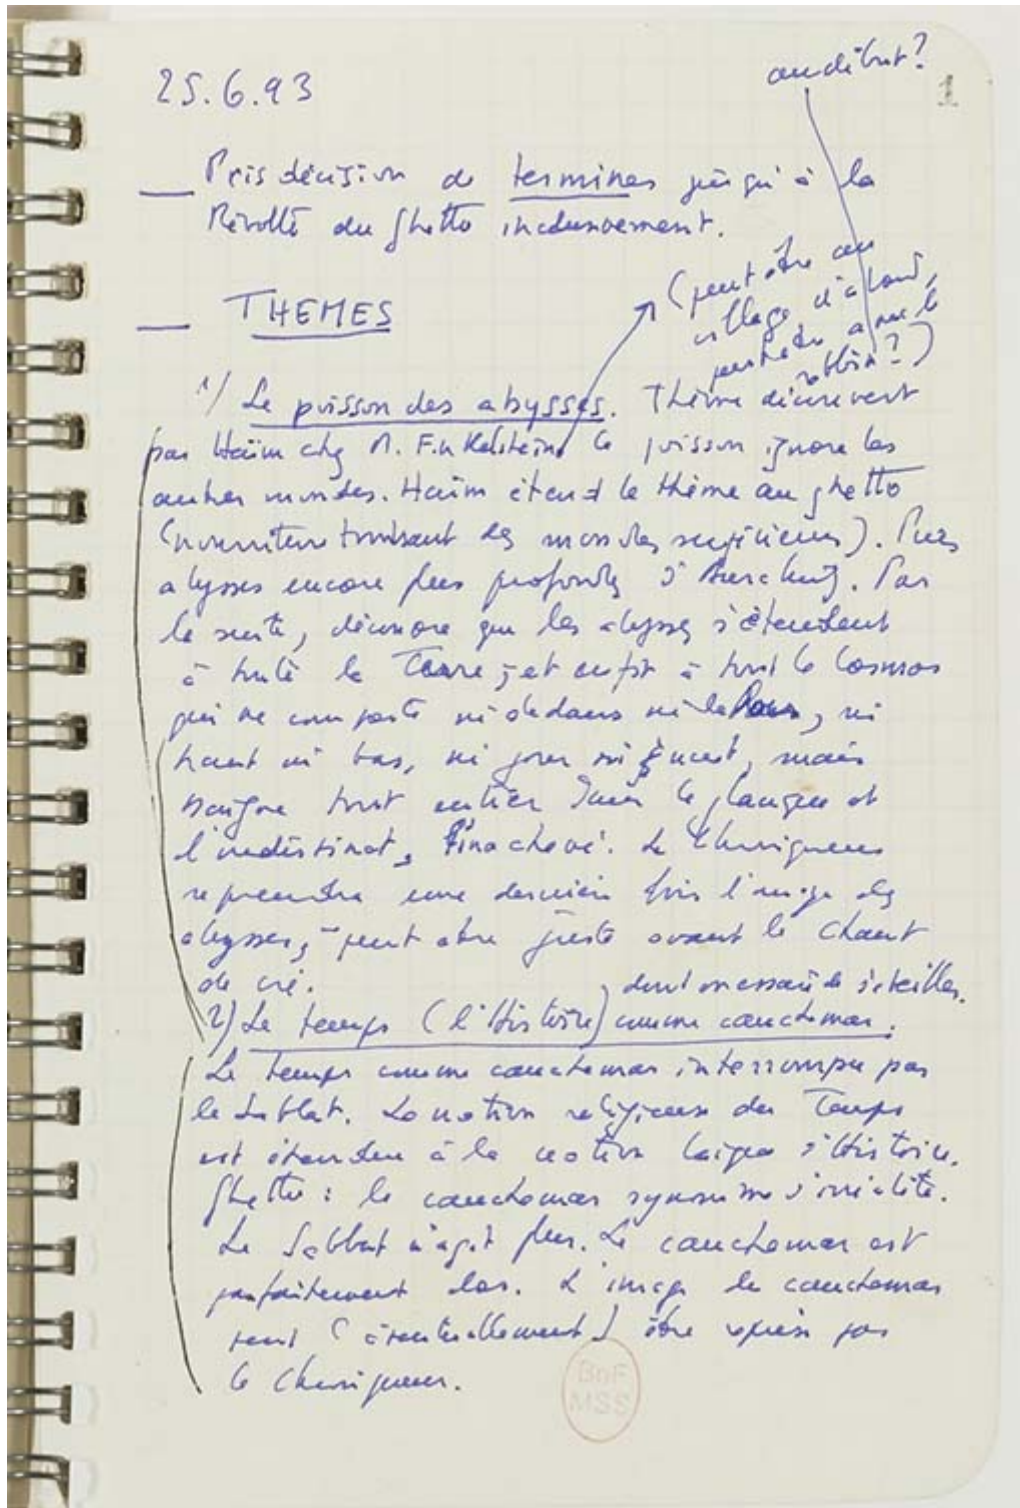 au début?
1
25.6.93
— Pris décision de terminer jusqu'à la
Révolte du Ghetto inclusivement.
(peut être au
village, d'abord,
peut être avec le
rabbin?)
— THEMES
1/ Le poisson des abysses. Thème découvert
par Haïm chez M. Finkelstein. Le poisson ignore les
autres mondes. Haïm étend le thème au ghetto
(nourriture tombant des mondes supérieurs). Puis
abysses encore plus profonds d'Auschwitz. Par
la suite, découvre que les abysses s'étendent
à toute la Terre; et enfin à tout le Cosmos
qui ne comporte ni dedans ni dehors, ni
haut ni bas, ni jour ni nuit, mais
baigne tout entier dans le glauque et
l'indistinct, l'inachevé. Le Chroniqueur
reprendra une dernière fois l'image des
abysses, peut être juste avant le Chant
de vie.
2) Le temps (l'Histoire) comme cauchemar, dont on essaie de s'éveiller.
Le temps comme cauchemar interrompu par
le Sabbat. La notion religieuse du Temps
est étendue à la notion laïque d'Histoire.
Ghetto: le cauchemar synonyme d'irréalité.
Le Sabbat n'agit plus. Le cauchemar est
parfaitement clos. L'image du cauchemar
peut (éventuellement) être reprise par
le Chroniqueur.
BnF
MSS